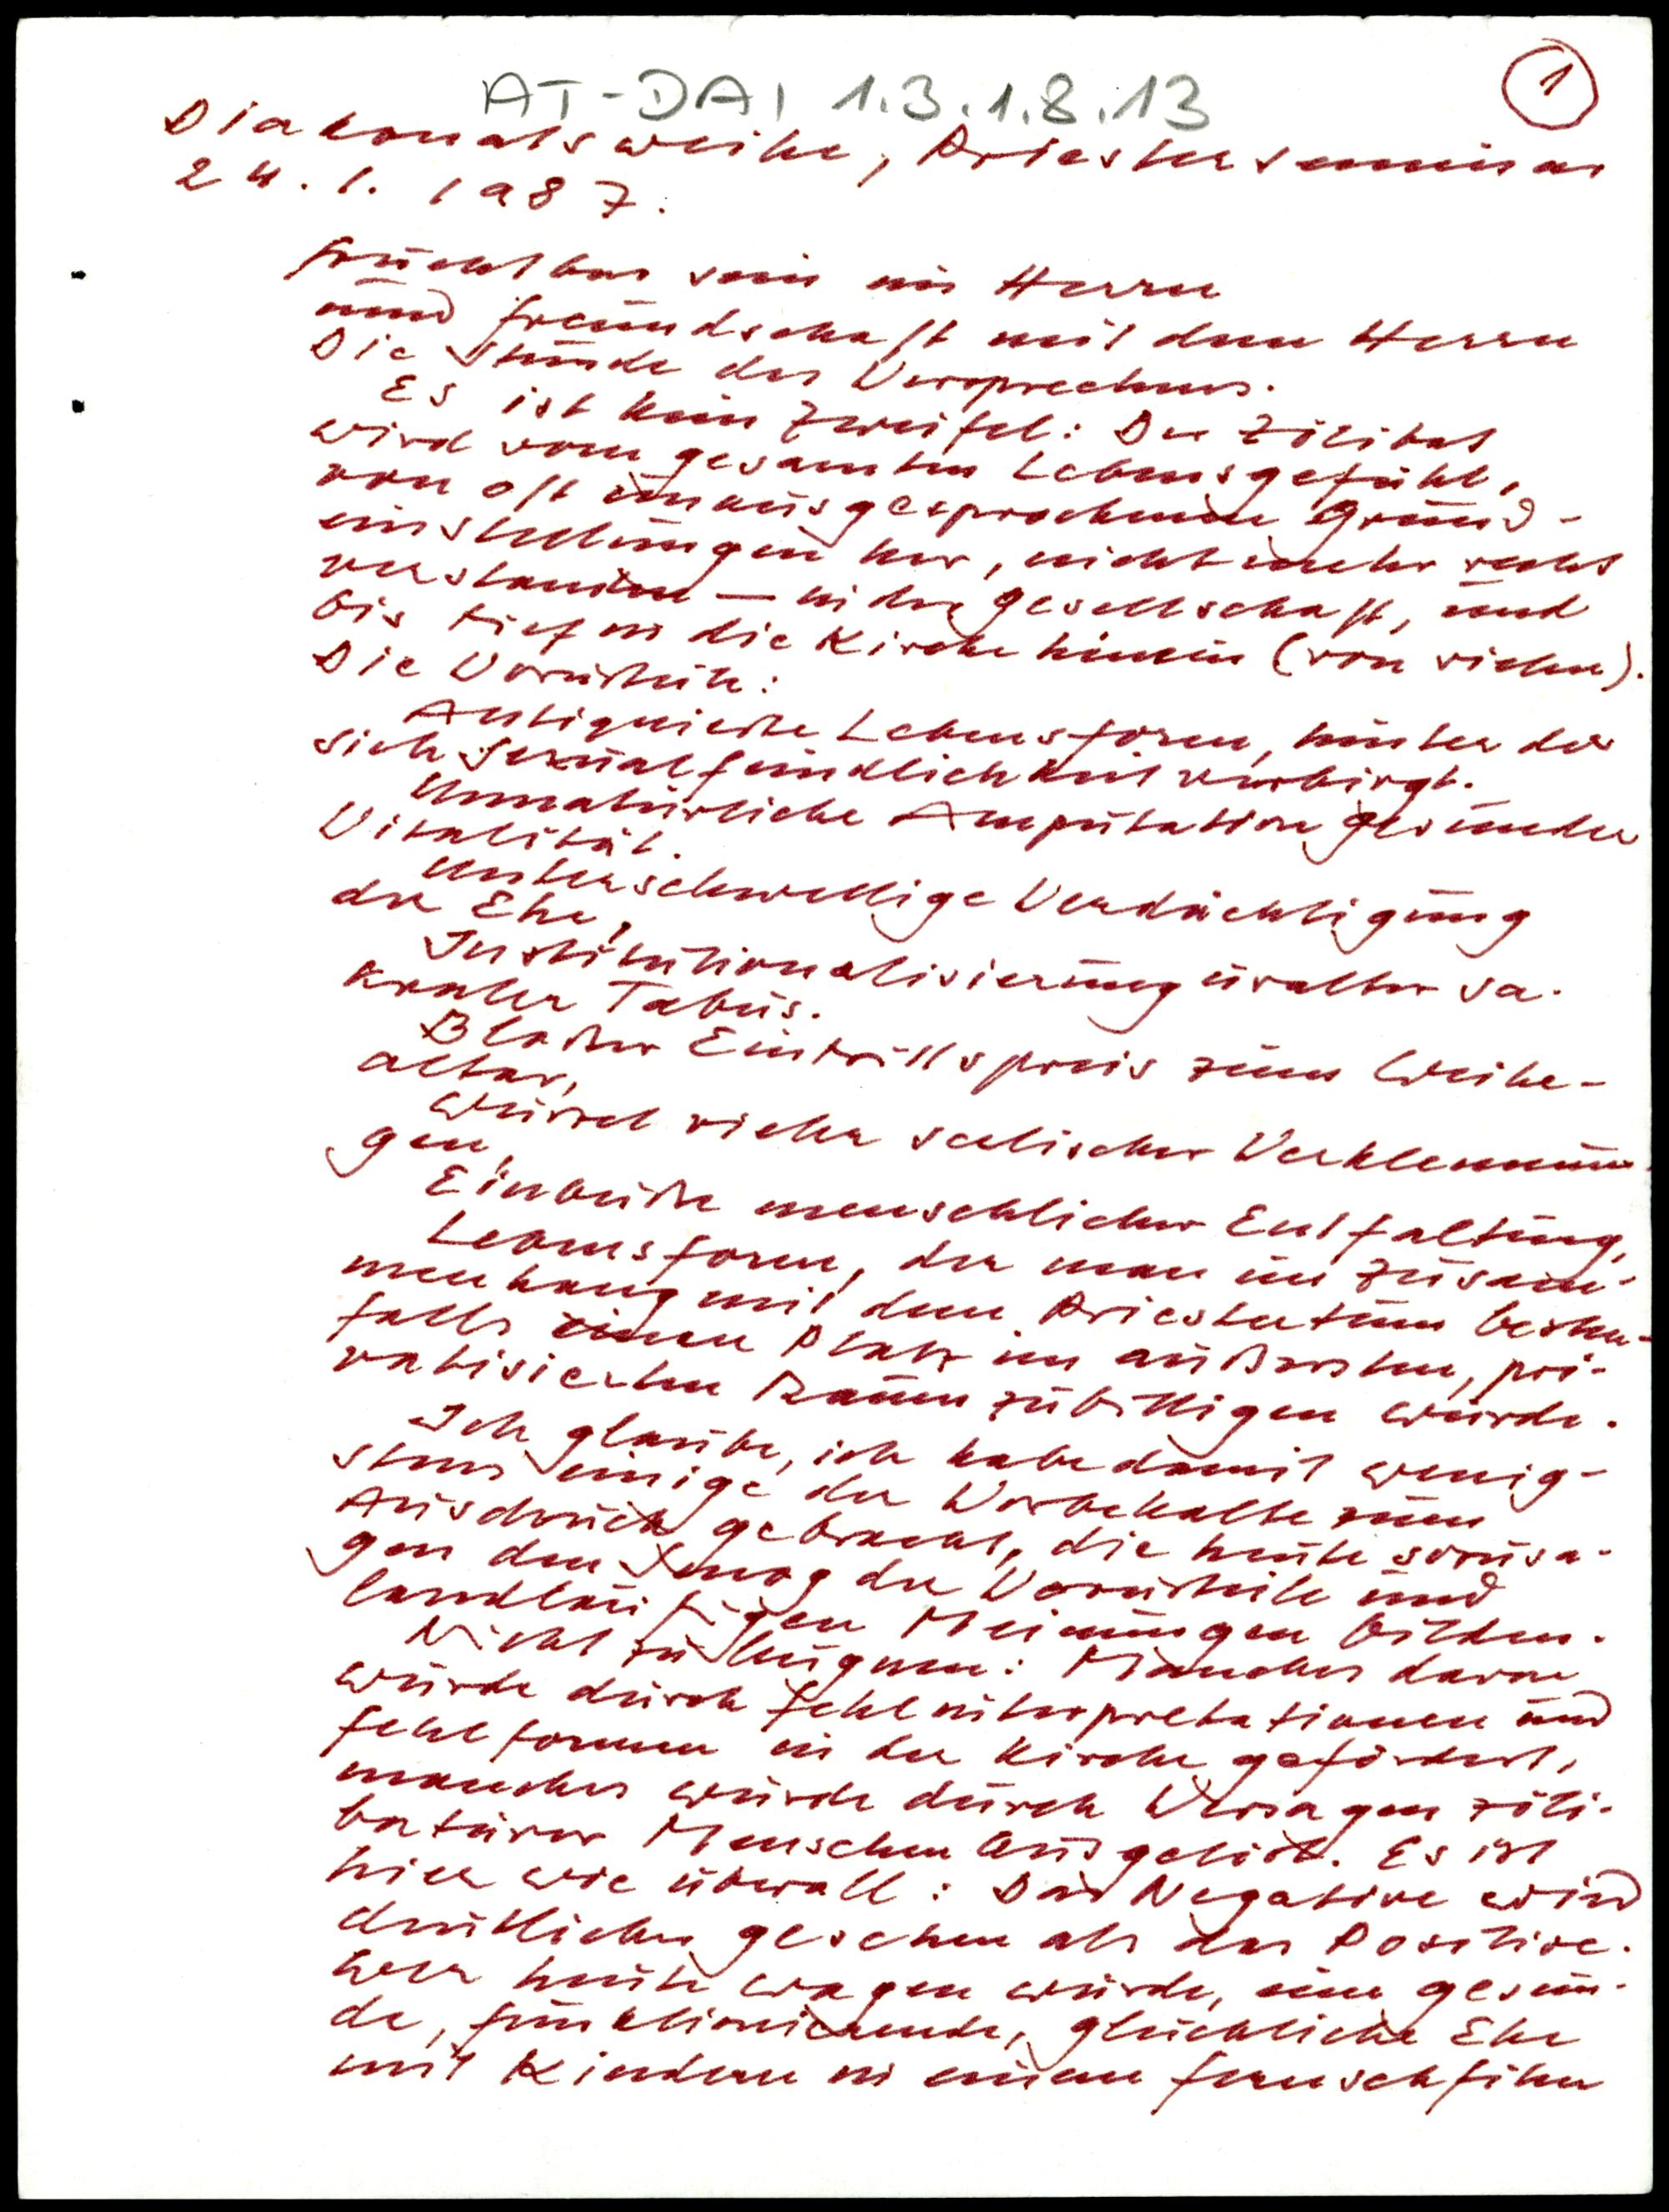 AT-DAI 1.3.1.8.13
1
Diakonatsweihe, Priesterseminar
24.1.1987.
Fruchtbar sein im Herrn
und Freundschaft mit dem Herrn
Die Stunde des Versprechens.
Es ist kein Zweifel: Der Zölibat
wird vom gesamten Lebensgefühl,
von oft unausgesprochenen Grund-
einstellungen her, nicht mehr recht
verstanden – in der Gesellschaft, und
bis tief in die Kirche hinein (von vielen).
Die Vorurteile:
Antiquierte Lebensform, hinter der
sich Sexualfeindlichkeit verbirgt.
Unnatürliche Amputation gesunder
Vitalität.
Unterschwellige Verdächtigung
der Ehe,
Institutionalisierung uralter sa-
kraler Tabus.
Bloßer Eintrittspreis zum Weihe-
altar,
Wurzel vieler seelischer Verklemmun-
gen,
Einbuße menschlicher Entfaltung,
Lebensform, der man im Zusam-
menhang mit dem Priestertum besten-
falls einen Platz im äußersten, pri-
vatisierten Raum zubilligen würde.
Ich glaube, ich habe damit wenig-
stens einige der Vorbehalte zum
Ausdruck gebracht, die heute sozusa-
gen den Smog der Vorurteile und
landläufigen Meinungen bilden.
Nicht zu leugnen: Manches davon
wurde durch Fehlinterpretationen und
Fehlformen in der Kirche gefördert,
manches wurde durch Versagen zöli-
batärer Menschen ausgelöst. Es ist
hier wie überall: Das Negative wird
deutlicher gesehen als das Positive.
Wer heute wagen würde, eine gesun-
de, funktionierende, glückliche Ehe
mit Kindern in einem Fernsehfilm